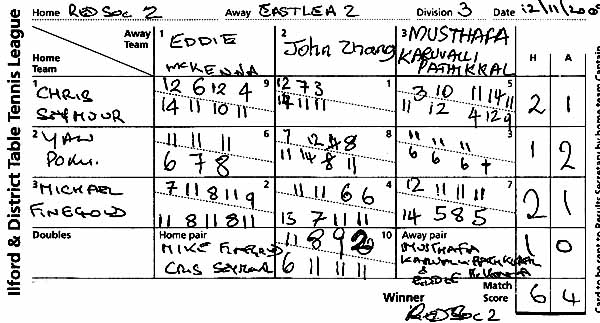 Ilford & District Table Tennis League
Home REDSOC 2 Away EASTLEA 2 Division 3 Date 12/11/200
Away Team
Home Team
1 EDDIE McKENNA
2 John Zhang
3 MUSTHAFA KARUVALLI PATHIKKAL
H A
1 CHRIS SEYMOUR
9
12 6 12 4
14 11 10 11
1
12 7 3
14 11 11
5
3 10 11 14 11
11 12 4 12 9
2 1
2 YAW POKU.
6
11 11 11
6 7 8
8
7 12 8
11 14 8 11
3
11 11 11
6 6 6
1 2
3 MICHAEL FINEGOLD
2
7 11 8 11 9
11 8 11 8 11
4
11 11 6 6
13 7 11 11
7
12 11 11 11
14 5 8 5
2 1
Doubles
Home pair
MIKE FINEGOLD
CRIS SEYMOUR
10
11 8 9 2
6 11 11 11
Away pair
MUSTHAFA
KARUVALLI PATHIKKAL
& EDDIE McKENNA
1 0
Winner REDSOC 2
Match Score 6 4
Card to be sent to Results Secretary by home team Captain